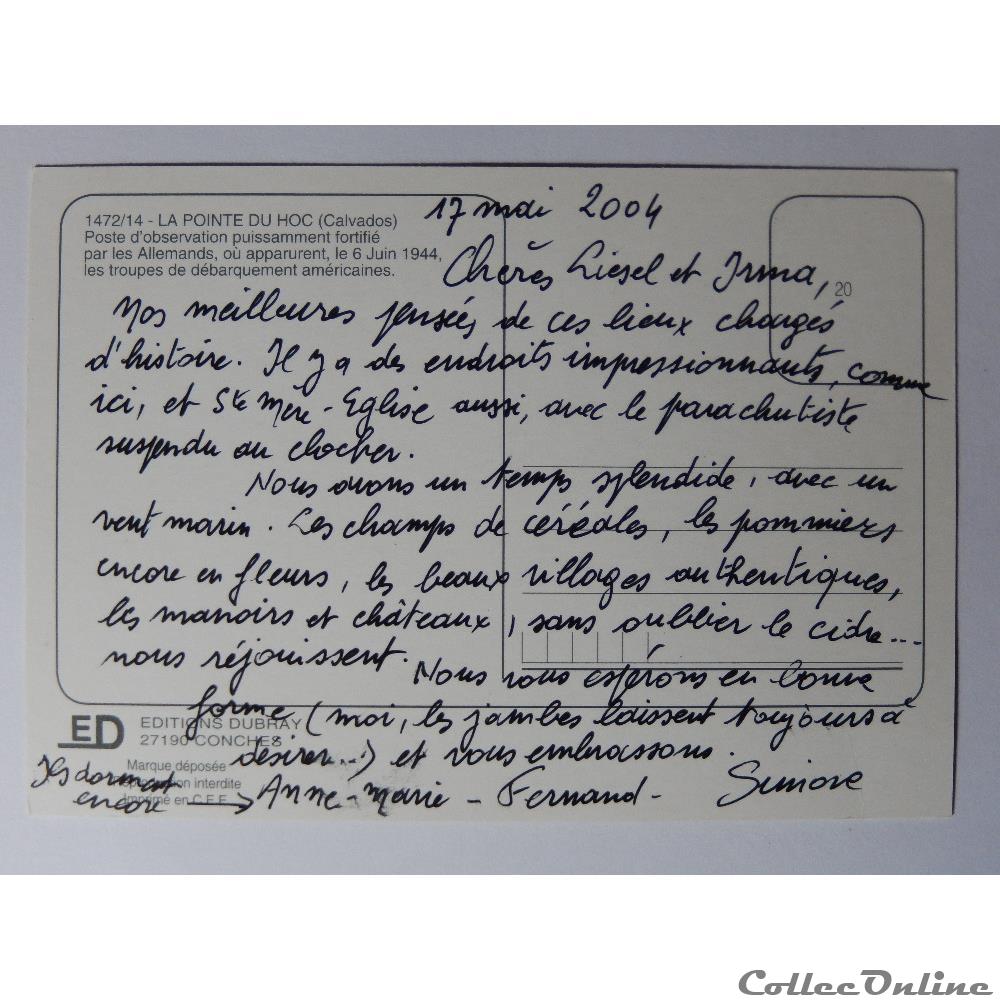 1472/14 - LA POINTE DU HOC (Calvados)
Poste d'observation puissamment fortifié
par les Allemands, où apparurent, le 6 Juin 1944,
les troupes de débarquement américaines.
17 mai 2004
Chères Liesel et Irma,
20
Nos meilleures pensées de ces lieux chargés
d'histoire. Il y a des endroits impressionnants, comme
ici, et Ste Mère-Eglise aussi, avec le parachutiste
suspendu au clocher.
Nous avons un temps splendide, avec un
vent marin. Les champs de céréales, les pommiers
encore en fleurs, les beaux villages authentiques,
les manoirs et châteaux, sans oublier le cidre...
nous réjouissent.
Nous vous espérons en bonne
forme (moi, les jambes laissent toujours à
désirer...) et vous embrassons.
Simone
Anne-Marie - Fernand -
Ils dorment
encore
ED
EDITIONS DUBRAY
27190 CONCHES
Marque déposée
interdite
Imprimé en C.E.E.
CollecOnline